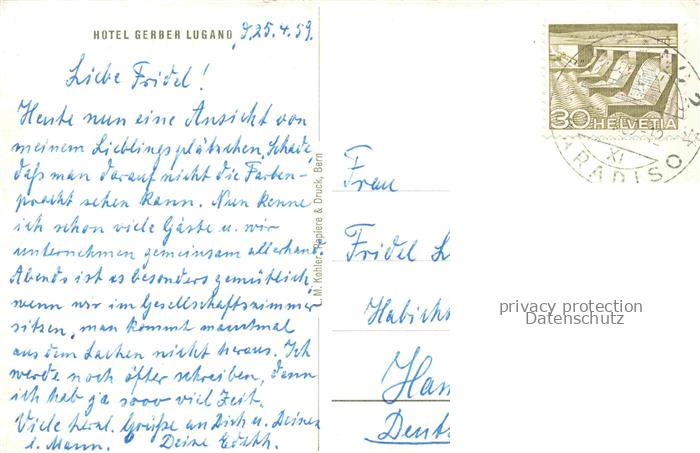 HOTEL GERBER LUGANO, d. 25.4.59.
Liebe Fridel!
Heute nun eine Ansicht von
meinem Lieblingsplätzchen. Schade,
daß man darauf nicht die Farben-
pracht sehen kann. Nun kenne
ich schon viele Gäste u. wir
unternehmen gemeinsam allerhand.
Abends ist es besonders gemütlich,
wenn wir im Gesellschaftszimmer
sitzen, man kommt manchmal
aus dem Lachen nicht heraus. Ich
werde noch öfter schreiben, denn
ich hab ja sooo viel Zeit.
Viele herzl. Grüße an Dich u. Deinen
l. Mann. Deine Edith.
L. M. Kohler, Papiere & Druck, Bern
30 HELVETIA
PARADISO
XI
Frau
Fridel L
Habicht
Ham
Deut
privacy protection
Datenschutz